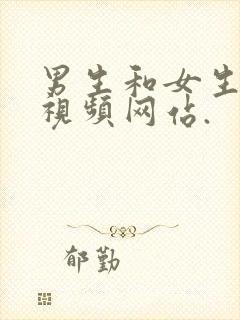 男生和女生
視頻网佔.
郁勤